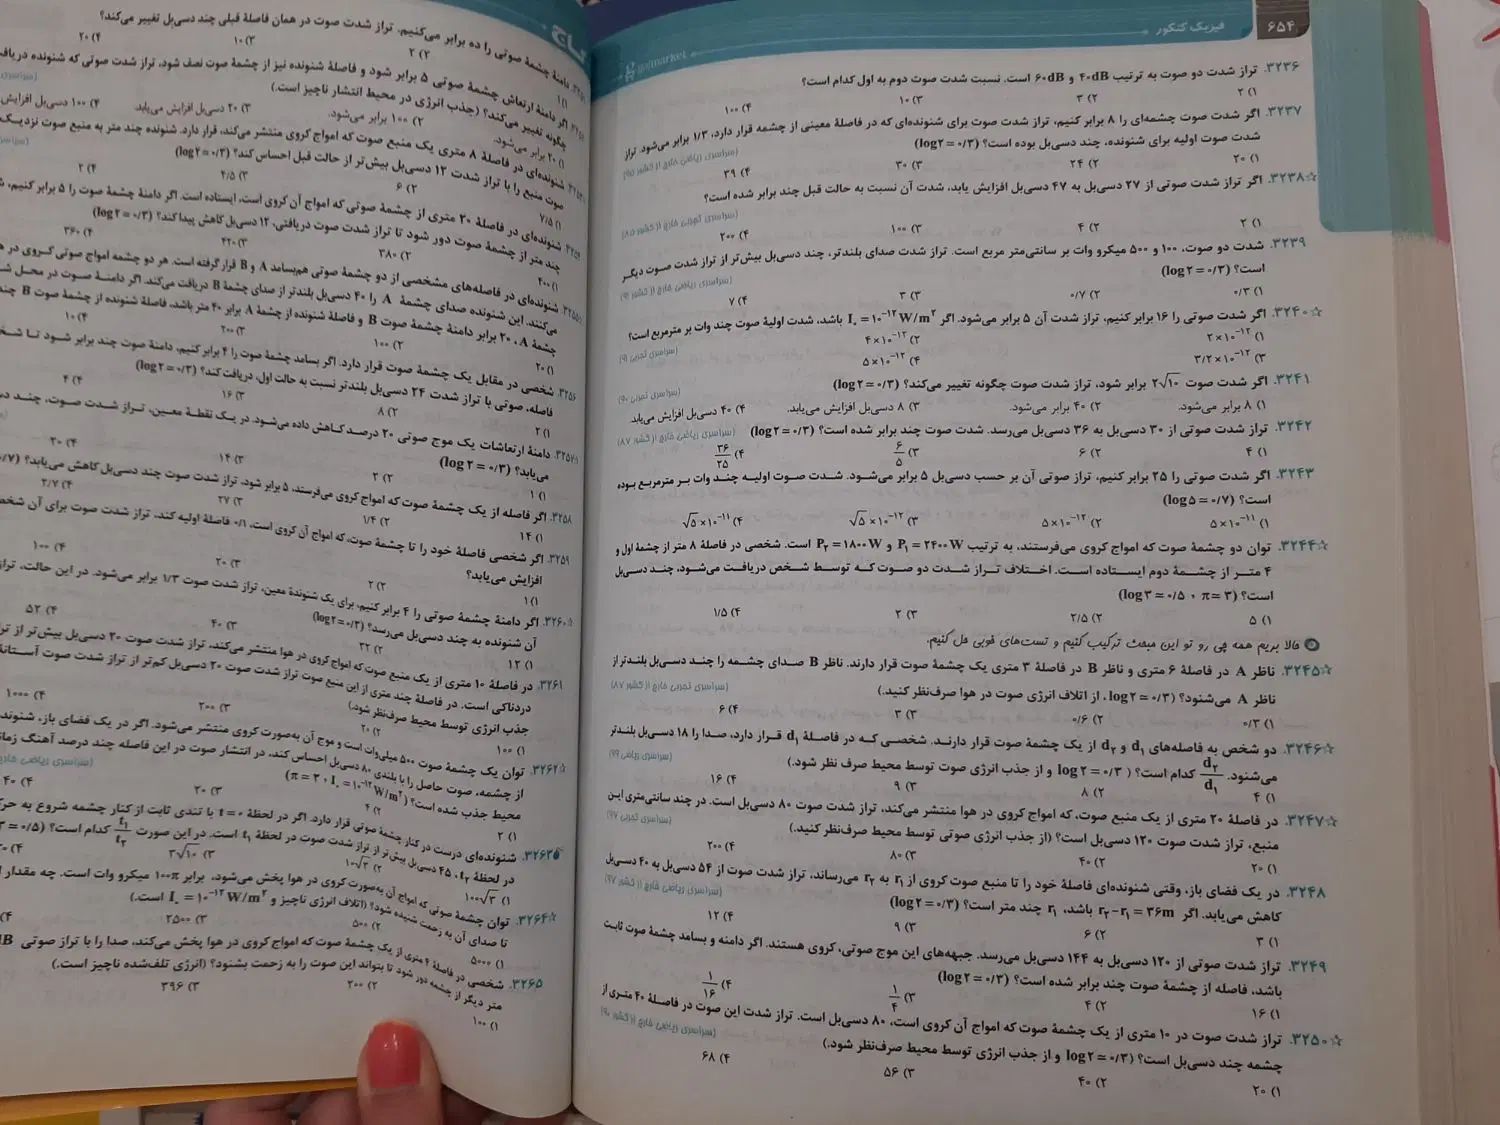 ۶۵۴
فیزیک کنکور
gajmarket
۳۲۳۶. تراز شدت دو صوت به ترتیب ۴۰dB و ۶۰dB است. نسبت شدت صوت دوم به اول کدام است؟
۱) ۲ ۲) ۳ ۳) ۱۰ ۴) ۱۰۰
۳۲۳۷. اگر شدت صوت چشمه‌ای را ۸ برابر کنیم، تراز شدت صوت برای شنونده‌ای که در فاصلهٔ معینی از چشمه قرار دارد، ۱/۳ برابر می‌شود. تراز
شدت صوت اولیه برای شنونده، چند دسی‌بل بوده است؟ (log۲=۰/۳) (سراسری ریاضی خارج از کشور ۹۵)
۱) ۲۰ ۲) ۲۴ ۳) ۳۰ ۴) ۳۹
☆۳۲۳۸. اگر تراز شدت صوتی از ۲۷ دسی‌بل به ۴۷ دسی‌بل افزایش یابد، شدت آن نسبت به حالت قبل چند برابر شده است؟
(سراسری تجربی خارج از کشور ۸۵)
۱) ۲ ۲) ۴ ۳) ۱۰۰ ۴) ۲۰۰
۳۲۳۹. شدت دو صوت، ۱۰۰ و ۵۰۰ میکرو وات بر سانتی‌متر مربع است. تراز شدت صدای بلندتر، چند دسی‌بل بیش‌تر از تراز شدت صوت دیگر
است؟ (log۲=۰/۳) (سراسری ریاضی خارج از کشور ۹۱)
۱) ۰/۳ ۲) ۰/۷ ۳) ۳ ۴) ۷
☆۳۲۴۰. اگر شدت صوتی را ۱۶ برابر کنیم، تراز شدت آن ۵ برابر می‌شود. اگر I₀=۱۰⁻¹² W/m² باشد، شدت اولیهٔ صوت چند وات بر مترمربع است؟
۱) ۲×۱۰⁻¹² ۲) ۴×۱۰⁻¹² (سراسری تجربی ۹۱)
۳) ۳/۲×۱۰⁻¹² ۴) ۵×۱۰⁻¹²
۳۲۴۱. اگر شدت صوت ۲√۱۰ برابر شود، تراز شدت صوت چگونه تغییر می‌کند؟ (log۲=۰/۳) (سراسری تجربی ۹۰)
۱) ۸ برابر می‌شود. ۲) ۴۰ برابر می‌شود. ۳) ۸ دسی‌بل افزایش می‌یابد. ۴) ۴۰ دسی‌بل افزایش می‌یابد.
۳۲۴۲. تراز شدت صوتی از ۳۰ دسی‌بل به ۳۶ دسی‌بل می‌رسد. شدت صوت چند برابر شده است؟ (log۲=۰/۳) (سراسری ریاضی خارج از کشور ۸۷)
۱) ۴ ۲) ۶ ۳) ۶/۵ ۴) ۳۶/۲۵
۳۲۴۳. اگر شدت صوتی را ۲۵ برابر کنیم، تراز صوتی آن بر حسب دسی‌بل ۵ برابر می‌شود. شدت صوت اولیه چند وات بر مترمربع بوده
است؟ (log۵=۰/۷)
۱) ۵×۱۰⁻¹¹ ۲) ۵×۱۰⁻¹² ۳) √۵×۱۰⁻¹² ۴) √۵×۱۰⁻¹¹
☆۳۲۴۴. توان دو چشمهٔ صوت که امواج کروی می‌فرستند، به ترتیب P₁=۲۴۰۰W و P₂=۱۸۰۰W است. شخصی در فاصلهٔ ۸ متر از چشمهٔ اول و
۴ متر از چشمهٔ دوم ایستاده است. اختلاف تراز شدت دو صوت که توسط شخص دریافت می‌شود، چند دسی‌بل
است؟ (log۳=۰/۵ ، π=۳)
۱) ۵ ۲) ۲/۵ ۳) ۲ ۴) ۱/۵
حالا بریم همه چی رو تو این مبحث ترکیب کنیم و تست‌های خوبی حل کنیم.
☆۳۲۴۵. ناظر A در فاصلهٔ ۶ متری و ناظر B در فاصلهٔ ۳ متری یک چشمهٔ صوت قرار دارند. ناظر B صدای چشمه را چند دسی‌بل بلندتر از
ناظر A می‌شنود؟ (log۲=۰/۳، از اتلاف انرژی صوت در هوا صرف‌نظر کنید.) (سراسری تجربی خارج از کشور ۸۷)
۱) ۰/۳ ۲) ۰/۶ ۳) ۳ ۴) ۶
☆۳۲۴۶. دو شخص به فاصله‌های d₁ و d₂ از یک چشمهٔ صوت قرار دارند. شخصی که در فاصلهٔ d₁ قرار دارد، صدا را ۱۸ دسی‌بل بلندتر
می‌شنود. d₂/d₁ کدام است؟ (log۲=۰/۳ و از جذب انرژی صوت توسط محیط صرف نظر شود.) (سراسری ریاضی ۹۹)
۱) ۴ ۲) ۸ ۳) ۹ ۴) ۱۶
☆۳۲۴۷. در فاصلهٔ ۲۰ متری از یک منبع صوت، که امواج کروی در هوا منتشر می‌کند، تراز شدت صوت ۸۰ دسی‌بل است. در چند سانتی‌متری این
منبع، تراز شدت صوت ۱۲۰ دسی‌بل است؟ (از جذب انرژی صوتی توسط محیط صرف‌نظر کنید.) (سراسری تجربی ۹۷)
۱) ۲۰ ۲) ۴۰ ۳) ۸۰ ۴) ۲۰۰
۳۲۴۸. در یک فضای باز، وقتی شنونده‌ای فاصلهٔ خود را تا منبع صوت کروی از r₁ به r₂ می‌رساند، تراز شدت صوت از ۵۴ دسی‌بل به ۴۰ دسی‌بل
کاهش می‌یابد. اگر r₂−r₁=۳۶m باشد، r₁ چند متر است؟ (log۲=۰/۳) (سراسری ریاضی خارج از کشور ۹۷)
۱) ۳ ۲) ۶ ۳) ۹ ۴) ۱۲
۳۲۴۹. تراز شدت صوتی از ۱۲۰ دسی‌بل به ۱۴۴ دسی‌بل می‌رسد. جبهه‌های این موج صوتی، کروی هستند. اگر دامنه و بسامد چشمهٔ صوت ثابت
باشد، فاصله از چشمهٔ صوت چند برابر شده است؟ (log۲=۰/۳)
۱) ۱۶ ۲) ۴ ۳) ۱/۴ ۴) ۱/۱۶
☆۳۲۵۰. تراز شدت صوت در ۱۰ متری از یک چشمهٔ صوت که امواج آن کروی است، ۸۰ دسی‌بل است. تراز شدت این صوت در فاصلهٔ ۴۰ متری از
چشمه چند دسی‌بل است؟ (log۲=۰/۳ و از جذب انرژی توسط محیط صرف‌نظر شود.) (سراسری ریاضی خارج از کشور ۹۰)
۱) ۲۰ ۲) ۴۰ ۳) ۵۶ ۴) ۶۸
دامنهٔ چشمهٔ صوتی را ده برابر می‌کنیم. تراز شدت صوت در همان فاصلهٔ قبلی چند دسی‌بل تغییر می‌کند؟
۱) ۱ ۲) ۲ ۳) ۱۰ ۴) ۲۰
اگر دامنهٔ ارتعاش چشمهٔ صوتی ۵ برابر شود و فاصلهٔ شنونده نیز از چشمهٔ صوت نصف شود، تراز شدت صوتی که شنونده
چگونه تغییر می‌کند؟ (جذب انرژی در محیط انتشار ناچیز است.)
۱) ۲۰ برابر می‌شود. ۲) ۱۰۰ برابر می‌شود. ۳) ۲۰ دسی‌بل افزایش می‌یابد. ۴) ۱۰۰ دسی‌بل افزایش
شنونده‌ای در فاصلهٔ ۸ متری یک منبع صوت که امواج کروی منتشر می‌کند، قرار دارد. شنونده چند متر به منبع صوت نزدیک
صوت منبع را با تراز شدت ۱۲ دسی‌بل بیش‌تر از حالت قبل احساس کند؟ (log۲=۰/۳)
۱) ۷/۵ ۲) ۶ ۳) ۴/۵ ۴) ۲
شنونده‌ای در فاصلهٔ ۲۰ متری از چشمهٔ صوتی که امواج آن کروی است، ایستاده است. اگر دامنهٔ چشمهٔ صوت را ۵ برابر کنیم،
چند متر از چشمهٔ صوت دور شود تا تراز شدت صوت دریافتی، ۱۲ دسی‌بل کاهش پیدا کند؟ (log۲=۰/۳)
۱) ۴۰۰ ۲) ۳۸۰ ۳) ۴۲۰ ۴) ۳۶۰
شنونده‌ای در فاصله‌های مشخصی از دو چشمهٔ صوتی هم‌بسامد A و B قرار گرفته است. هر دو چشمه امواج صوتی کروی در
می‌کنند. این شنونده صدای چشمهٔ A را ۴۰ دسی‌بل بلندتر از صدای چشمهٔ B دریافت می‌کند. اگر دامنهٔ صوت در محل
چشمهٔ A، ۲۰ برابر دامنهٔ چشمهٔ صوت B و فاصلهٔ شنونده از چشمهٔ A برابر ۴۰ متر باشد، فاصلهٔ شنونده از چشمهٔ صوت B
۱) ۲۰ ۲) ۱۰۰ ۳) ۲۰۰ ۴) ۱۰
۳۲۵۶. شخصی در مقابل یک چشمهٔ صوت قرار دارد. اگر بسامد چشمهٔ صوت را ۴ برابر کنیم، دامنهٔ صوت چند برابر شود تا
فاصله، صوتی با تراز شدت ۲۴ دسی‌بل بلندتر نسبت به حالت اول، دریافت کند؟ (log۲=۰/۳)
۱) ۲ ۲) ۸ ۳) ۱۶ ۴) ۴
۳۲۵۷. دامنهٔ ارتعاشات یک موج صوتی ۲۰ درصد کاهش داده می‌شود. در یک نقطهٔ معین، تراز شدت صوت، چند
می‌یابد؟ (log۲=۰/۳)
۱) ۱ ۲) ۲ ۳) ۱۴ ۴) ۲۰
۳۲۵۸. اگر فاصله از یک چشمهٔ صوت که امواج کروی می‌فرستد، ۵ برابر شود، تراز شدت صوت چند دسی‌بل کاهش می‌یابد؟
۱) ۱۴ ۲) ۱/۴ ۳) ۲۷ ۴) ۲/۷
۳۲۵۹. اگر شخصی فاصلهٔ خود را تا چشمهٔ صوت، که امواج آن کروی است، ۰/۱ فاصلهٔ اولیه کند، تراز شدت صوت برای آن
افزایش می‌یابد؟
۱) ۱ ۲) ۲ ۳) ۲۰ ۴) ۱۰۰
☆۳۲۶۰. اگر دامنهٔ چشمهٔ صوتی را ۴ برابر کنیم، برای یک شنوندهٔ معین، تراز شدت صوت ۱/۳ برابر می‌شود. در این حالت، تراز
آن شنونده به چند دسی‌بل می‌رسد؟ (log۲=۰/۳)
۱) ۱۲ ۲) ۲۲ ۳) ۴۰ ۴) ۵۲
۳۲۶۱. در فاصلهٔ ۱۰ متری از یک منبع صوت که امواج کروی در هوا منتشر می‌کند، تراز شدت صوت ۲۰ دسی‌بل بیش‌تر از
دردناکی است. در فاصلهٔ چند متری از این منبع صوت تراز شدت صوت ۲۰ دسی‌بل کم‌تر از تراز شدت صوت آستانهٔ
جذب انرژی توسط محیط صرف‌نظر شود.)
۱) ۱۰۰ ۲) ۲۰ ۳) ۲۰۰ ۴) ۱۰۰۰
☆۳۲۶۲. توان یک چشمهٔ صوت ۵۰۰ میلی‌وات است و موج آن به‌صورت کروی منتشر می‌شود. اگر در یک فضای باز،
از چشمه، صوت حاصل را با بلندی ۸۰ دسی‌بل احساس کند، در انتشار صوت در این فاصله چند درصد آهنگ
محیط جذب شده است؟ (I₀=۱۰⁻¹² W/m² ، π=۳)
۱) ۲ ۲) ۴ ۳) ۲۰ ۴) ۴۰
۳۲۶۳. شنونده‌ای درست در کنار چشمهٔ صوتی قرار دارد. اگر در لحظهٔ t=۰ با تندی ثابت از کنار چشمه شروع به
در لحظهٔ t₂، ۴۵ دسی‌بل بیش‌تر از تراز شدت صوت در لحظهٔ t₁ است. در این صورت t₁/t₂ کدام است؟
۱) ۱۰۰√۳ ۲) ۱۰√۳ ۳) ۳√۱۰
☆۳۲۶۴. توان چشمهٔ صوتی که امواج آن به‌صورت کروی در هوا پخش می‌شود، برابر ۱۰۰π میکرو وات است. چه مقدار
تا صدای آن به زحمت شنیده شود؟ (اتلاف انرژی ناچیز و I₀=۱۰⁻¹² W/m² است.)
۱) ۵۰۰۰ ۲) ۵۰۰ ۳) ۲۵۰۰
۳۲۶۵. شخصی در فاصلهٔ ۴ متری از یک چشمهٔ صوت که امواج کروی در هوا پخش می‌کند، صدا را با تراز صوتی
متر دیگر از چشمه دور شود تا بتواند این صوت را به زحمت بشنود؟ (انرژی تلف‌شده ناچیز است.)
۱) ۱۰۰ ۲) ۲۰۰ ۳) ۳۹۶